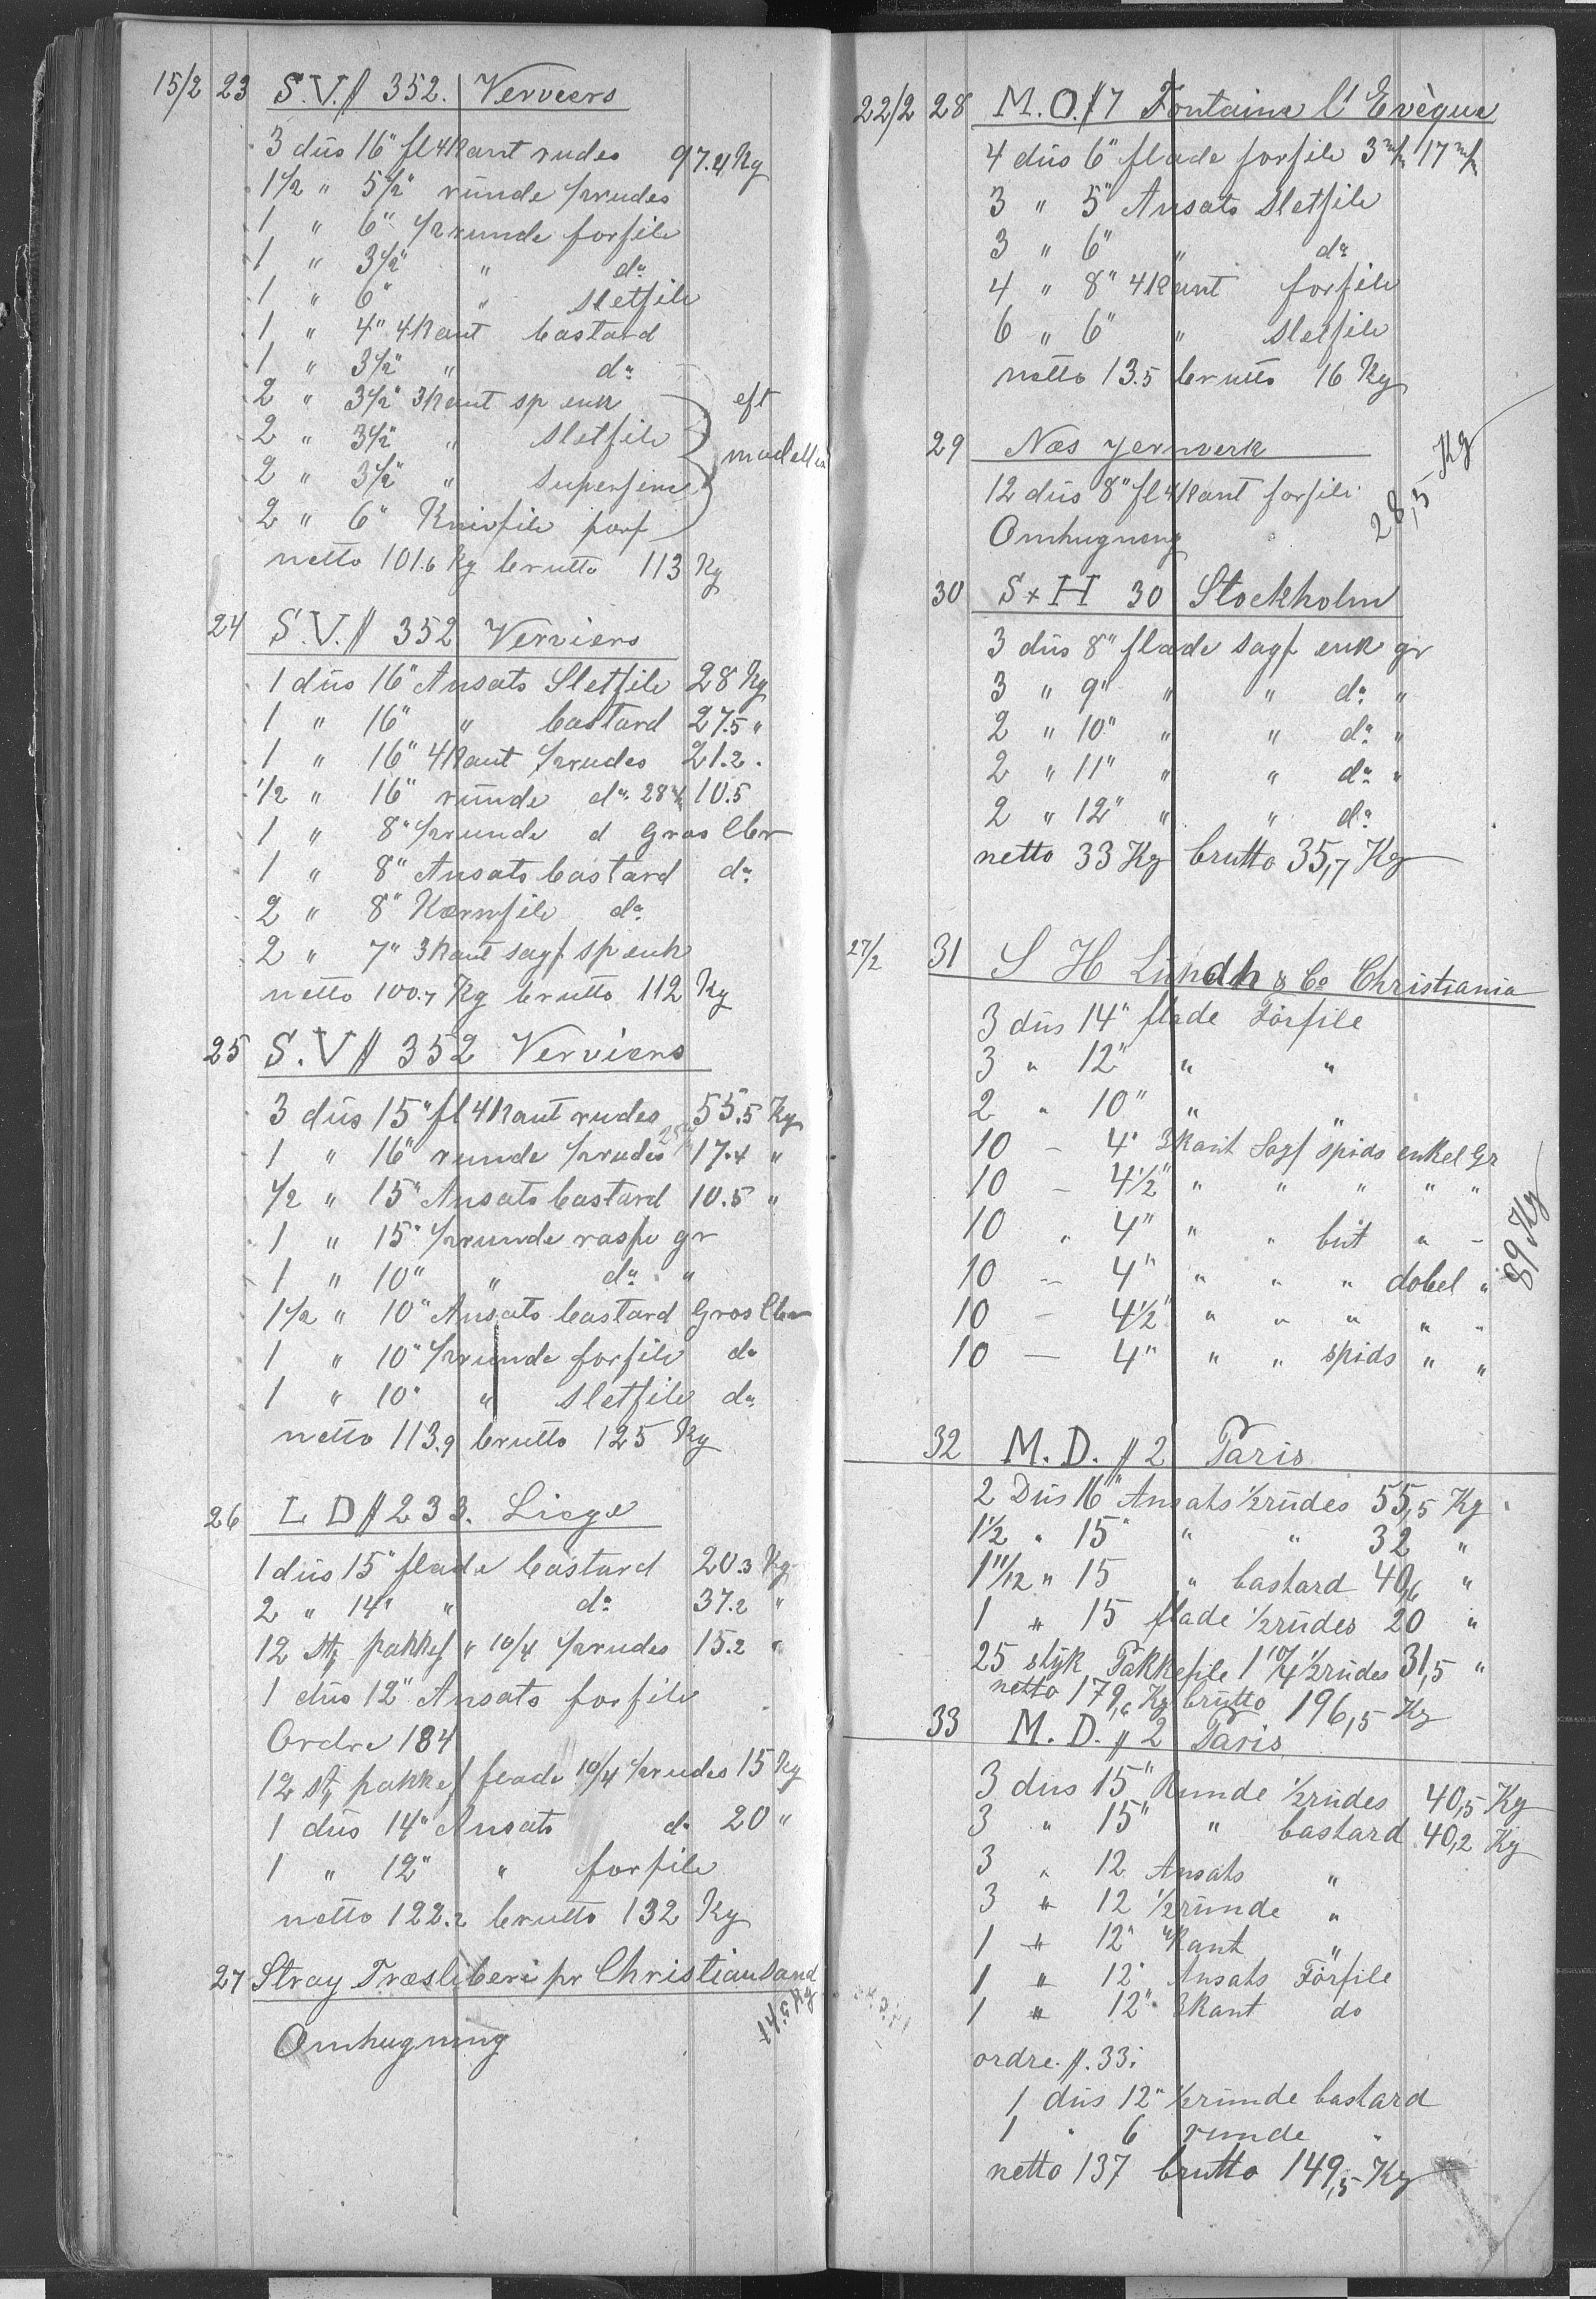 15/2 23 S.V. // 352. Verviers
3 düs 16" fl 4Kant rudes 97.4 Kg
1 1/2 " 5 1/2" runde 1/2rudes
1 " 6" 1/2runde forfile
1 " 3 1/2" " do
1 " 6" " Sletfile
1 " 4" 4Kant bastard
1 " 3 1/2" " do
2 " 3 1/2" 3Kant sp enk eft
2 " 3 1/2" " Sletfile modeller
2 " 3 1/2" " superfine
2 " 6" Knivfile forf
netto 101.6 Kg brutto 113 Kg
24 S.V. // 352 Verviers
1 düs 16" Ansats Sletfile 28 Kg
1 " 16" " bastard 27.5 "
1 " 16" 4Kant 1/2rudes 21.2 .
1/2 " 16" runde do 28 m/m 10.5
1 " 8" 1/2runde d Gros Cbr
1 " 8" Ansats bastard do
2 " 8" Kærnfile do
2 " 7" 3Kant sagf sp enk
netto 100.7 Kg brutto 112 Kg
25 S.V // 352 Verviers
3 düs 15" fl 4Kant rudes 55.5 Kg
1 " 16" runde 1/2rudes 17.4 "
1/2 " 15" Ansats bastard 10.5 "
1 " 15" 1/2runde raspe gr
1 " 10" " do "
1 1/2 " 10" Ansats bastard Gros Cbr
1 " 10" 1/2runde forfile do
1 " 10" " Sletfile do
netto 113.9 brutto 125 Kg
26 L D // 233. Liege
1 düs 15" flade bastard 20.3 Kg
2 " 14" " do 37.2 "
12 St pakkef " 10/4 1/2rudes 15.2 "
1 düs 12" Ansats forfile
Ordre 184
12 st pakkef flade 10/4 1/2rudes 15 Kg
1 düs 14" Ansats do 20 "
1 " 12" " forfile
netto 122.2 brutto 132 Kg
27 Stray Træsliberi pr Christiansand
Omhugning
22/2 28 M.O. // 7 Fontaine l'Evèque
4 düs 6" flade forfile 3 m/m 17 m/m
3 " 5" Ansats Sletfile
3 " 6" " do
4 " 8" 4Kant forfile
6 " 6" " Sletfile
netto 13.5 brutto 16 Kg
29 Næs Jernverk
12 düs 8" fl 4Kant forfile 28,5 Kg
Omhugning
30 S x H 30 Stockholm
3 düs 8" flade sagf enk gr
3 " 9" " " do "
2 " 10" " " do "
2 " 11" " " do "
2 " 12" " " do
netto 33 Kg brutto 35,7 Kg
27/2 31 S H Lundh & Co Christiania
3 düs 14" flade Forfile
3 " 12" " "
2 " 10" " "
10 - 4" 3Kant Sagf spids enkel Gr
10 - 4 1/2" " " " " "
10 " 4" " " but " -
10 - 4" " " " dobel "
10 - 4 1/2" " " " " "
10 - 4" " " spids " "
89 Kg
32 M. D. // 2 Paris
2 Düs 16" Ansats 1/2rudes 55,5 Kg
1 1/2 " 15" " " 32 "
1 11/12 " 15 " bastard 40,6 "
1 " 15 flade 1/2rudes 20 "
25 styk Pakkefile 1 10/4 1/2rudes 31,5 "
netto 179,6 Kg brutto 196,5 Kg
33 M. D. // 2 Paris
3 düs 15" Runde 1/2rudes 40,5 Kg
3 " 15" " bastard 40,2 Kg
3 " 12 Ansats "
3 " 12 1/2runde "
1 " 12" 4Kant "
1 " 12" Ansats Forfile
1 " 12" 3Kant do
ordre. //. 33.
1 düs 12" 1/2runde bastard
1 " 6 runde "
netto 137 brutto 149,5 Kg